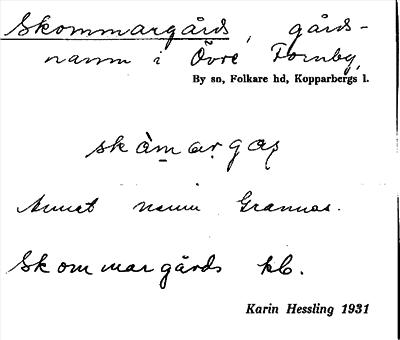 Skommargårds, gårds-
namn i Övre Fornby,
By sn, Folkare hd, Kopparbergs l.
Annat namn Grannas.
Skommargårds kb.
Karin Hessling 1931